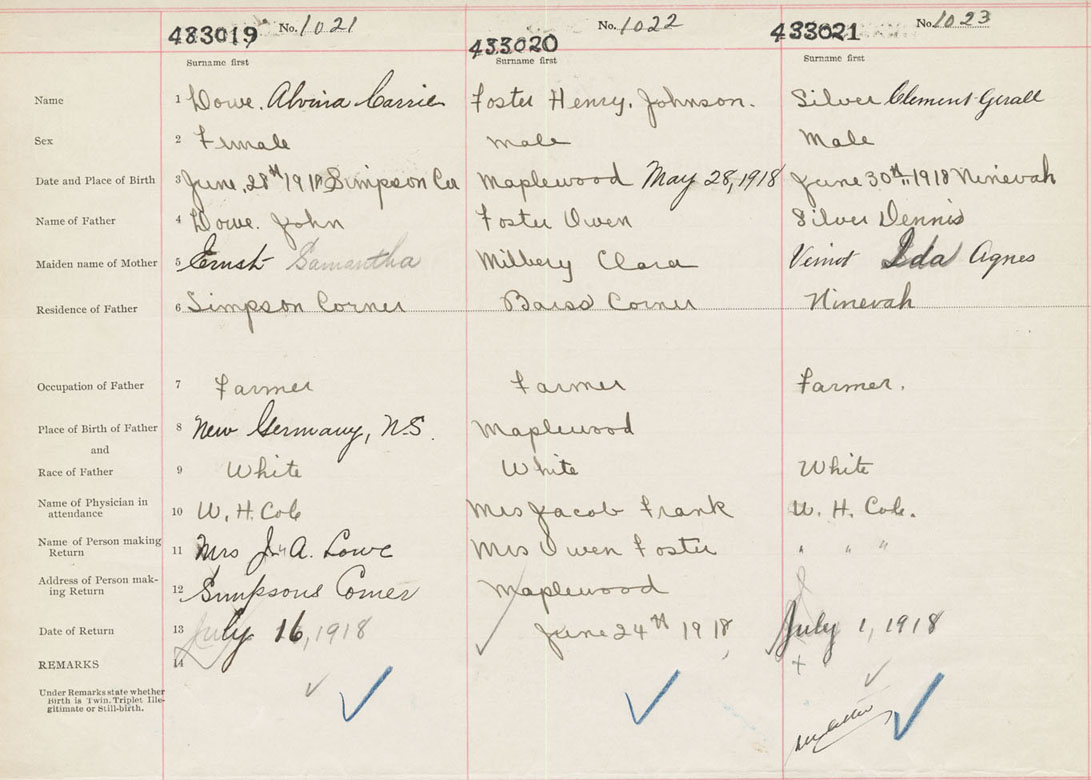 483019 No. 1021
433020 No. 1022
433021 No. 1023
Surname first Surname first Surname first
Name 1 Dowe. Alvina Carrie Foster Henry. Johnson. Silver Clement Gerall
Sex 2 Female male Male
Date and Place of Birth 3 June, 28th 1918 Simpson Cor Maplewood May 28, 1918 June 30th 1918 Ninevah
Name of Father 4 Dowe. John Foster Owen Silver Dennis
Maiden name of Mother 5 Ernst Samantha Milbery Clara Veinot Ida Agnes
Residence of Father 6 Simpson Corner Barss Corner Ninevah
Occupation of Father 7 Farmer Farmer Farmer.
Place of Birth of Father 8 New Germany, N.S. Maplewood
and
Race of Father 9 White White White
Name of Physician in
attendance 10 W. H. Cole Mrs Jacob Frank W. H. Cole.
Name of Person making
Return 11 Mrs J. A. Lowe Mrs Owen Foster " " "
Address of Person mak-
ing Return 12 Simpsons Corner Maplewood
Date of Return 13 July 16, 1918 June 24th 1918 July 1, 1918
REMARKS 14
Under Remarks state whether
Birth is Twin, Triplet Ille-
gitimate or Still-birth.